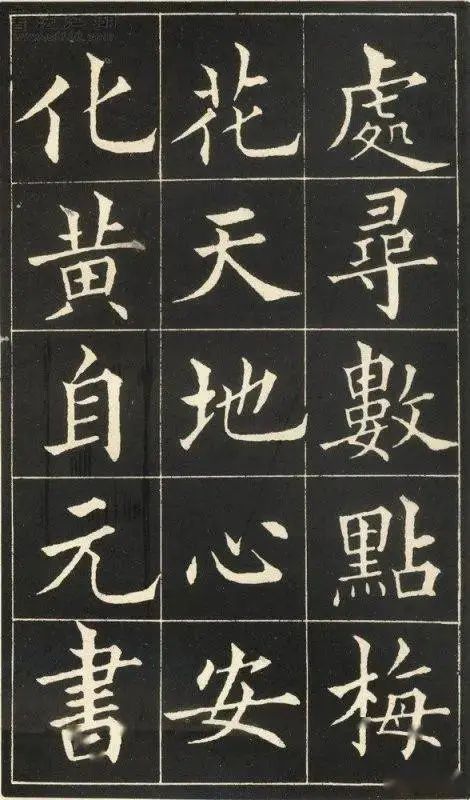 處尋數點梅
花天地心安
化黄自元書